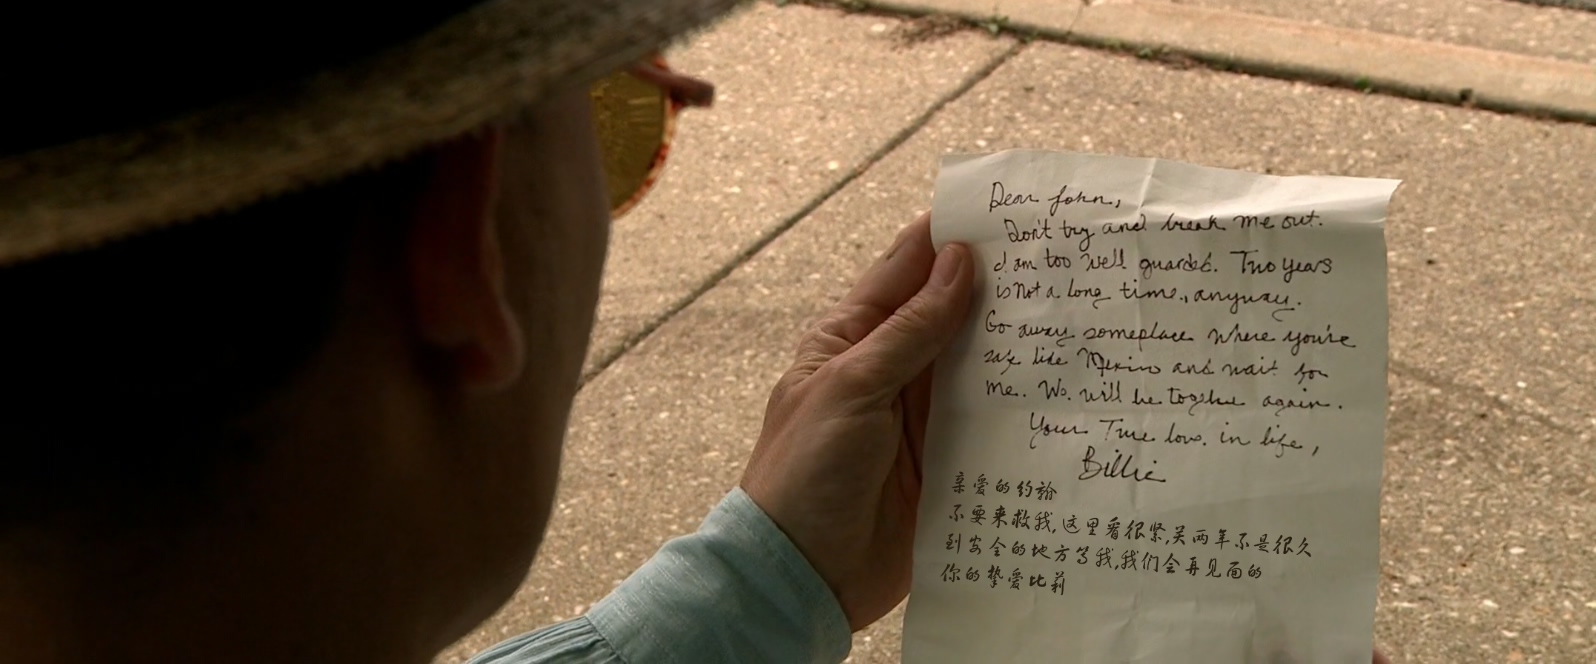 Dear John,
Don't try and break me out.
I am too well guarded. Two years
is not a long time, anyway.
Go away someplace where you're
safe like Mexico and wait for
me. We will be together again.
Your True love in life,
Billie
亲爱的约翰
不要来救我,这里看很紧,关两年不是很久
到安全的地方等我,我们会再见面的
你的挚爱比莉